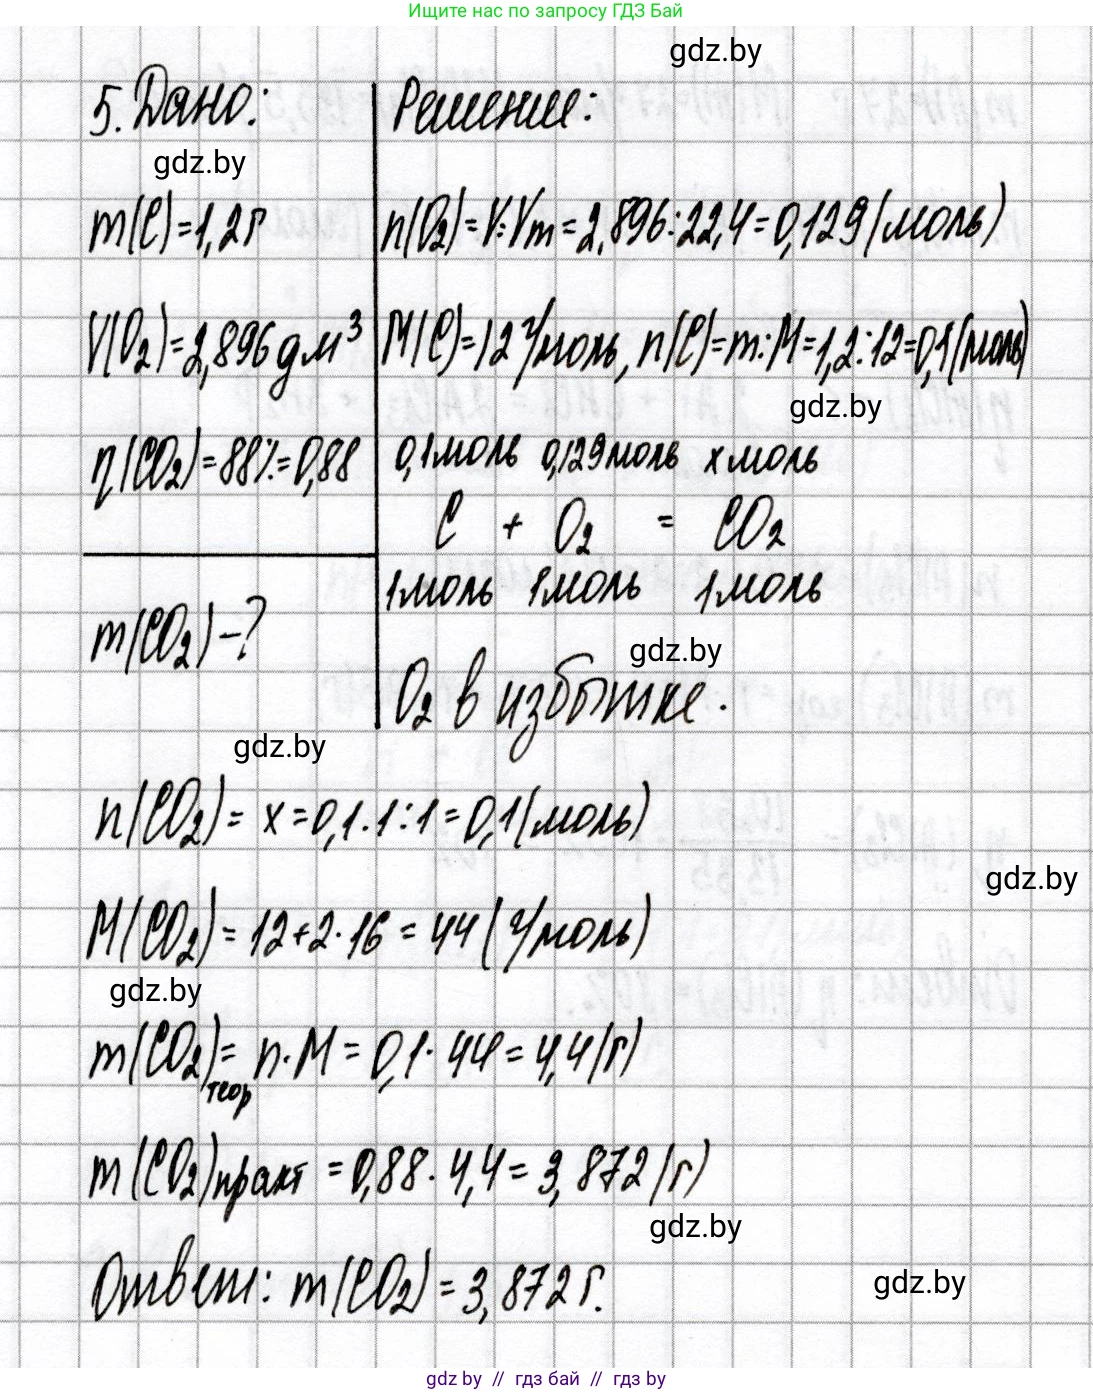 Ищите нас по запросу ГДЗ Бай
gdz.by
5. Дано:
Решение:
gdz.by
m(C)=1,2г
n(O₂)=V:Vm=2,896:22,4=0,129(моль)
V(O₂)=2,896дм³
M(C)=12г/моль, n(C)=m:M=1,2:12=0,1(моль)
gdz.by
η(CO₂)=88%=0,88
0,1моль 0,129моль x моль
C + O₂ = CO₂
1моль 1моль 1моль
m(CO₂)-?
gdz.by
O₂ в избытке.
gdz.by
n(CO₂)= x=0,1·1:1=0,1(моль)
gdz.by
M(CO₂)= 12+2·16 = 44 (г/моль)
gdz.by
m(CO₂)теор= n·M = 0,1·44=4,4(г)
m(CO₂)практ =0,88·4,4=3,872(г)
gdz.by
Ответ: m(CO₂)=3,872г.
gdz.by
gdz.by // гдз бай // гдз by